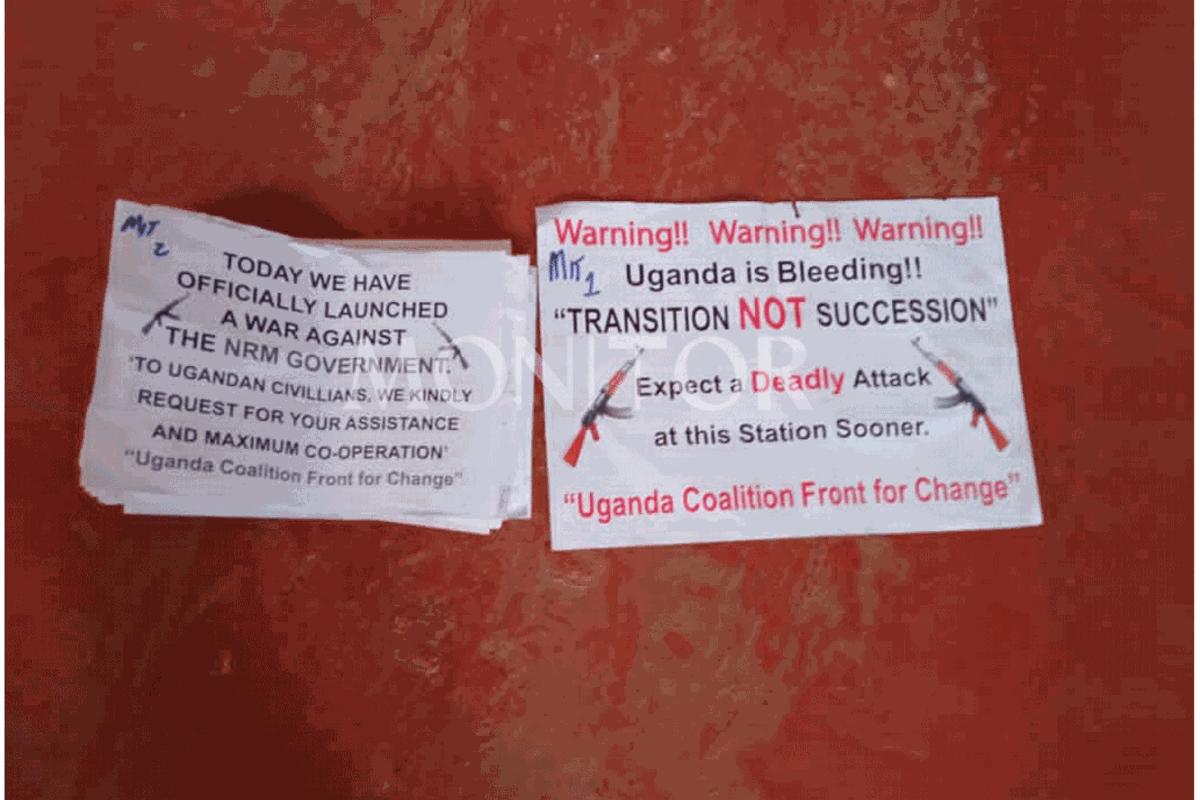 MKT
2
TODAY WE HAVE
OFFICIALLY LAUNCHED
A WAR AGAINST
THE NRM GOVERNMENT.
'TO UGANDAN CIVILLIANS, WE KINDLY
REQUEST FOR YOUR ASSISTANCE
AND MAXIMUM CO-OPERATION'
"Uganda Coalition Front for Change"
Warning!! Warning!! Warning!!
1
Uganda is Bleeding!!
"TRANSITION NOT SUCCESSION"
Expect a Deadly Attack
at this Station Sooner.
"Uganda Coalition Front for Change"
MONITOR